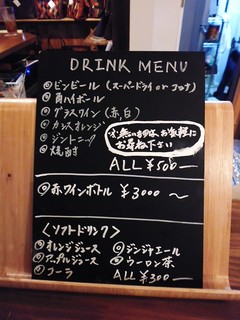 DRINK MENU
◎ビンビール(スーパードライ or コロナ)
◎角ハイボール
◎グラスワイン(赤,白)
◎カシスオレンジ
◎ジントニック
◎焼酎
※無いものは、お気軽に
お尋ね下さい
ALL ¥500—
◎赤ワインボトル ¥3000 ~
<ソフトドリンク>
◎オレンジジュース ◎ジンジャエール
◎アップルジュース ◎ウーロン茶
◎コーラ ALL ¥300—